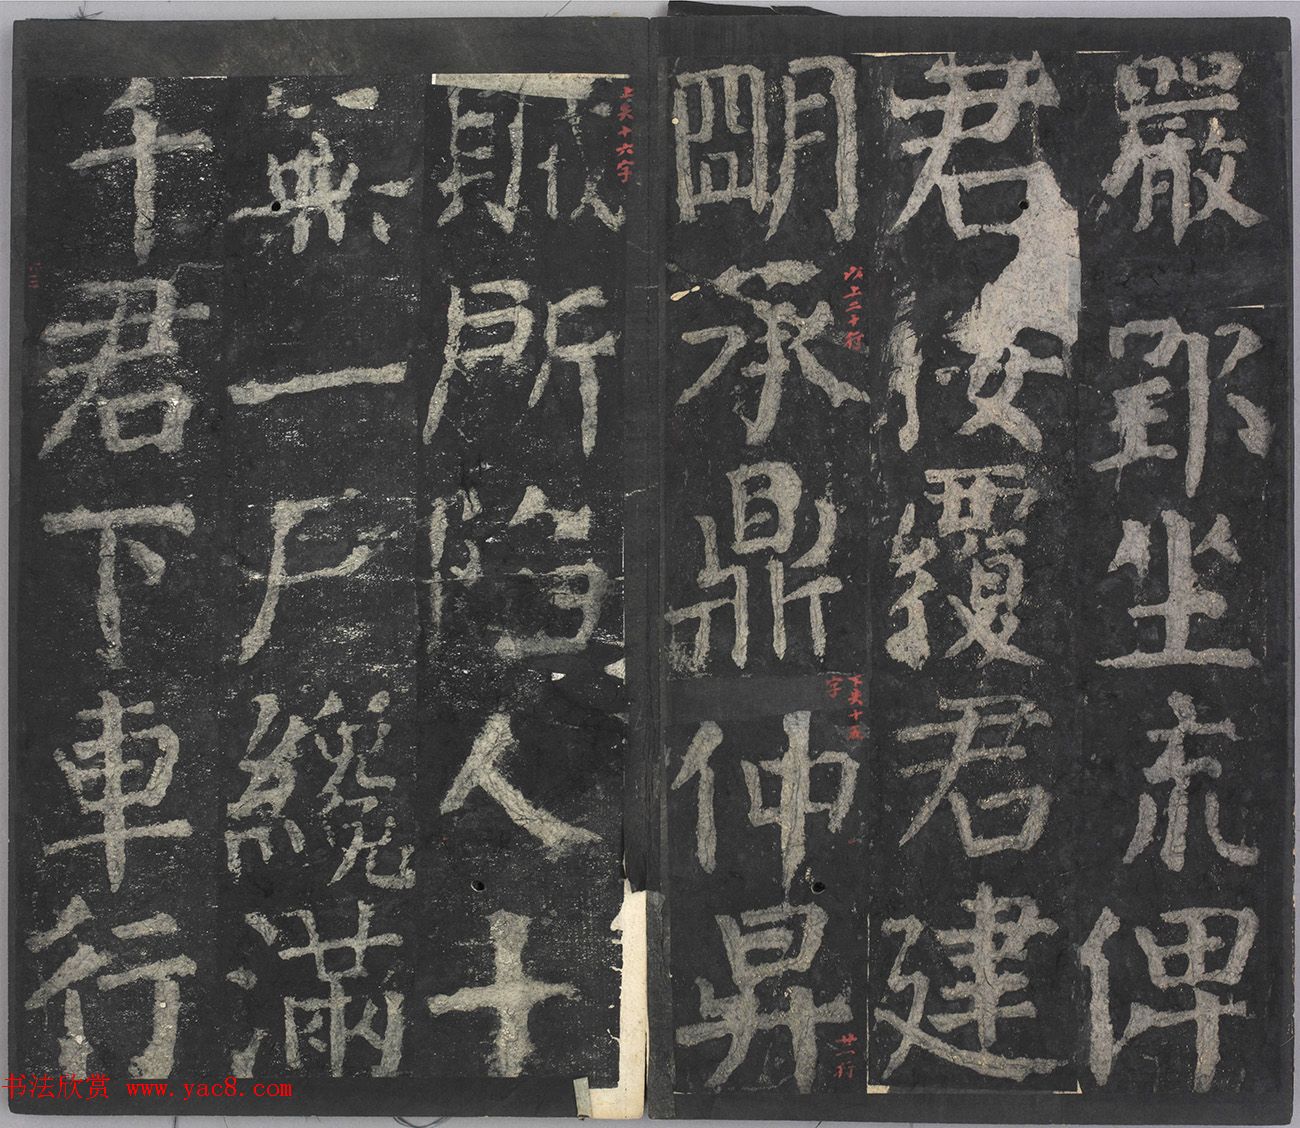 嚴郢坐流俾
君按覆君建
明承鼎仲昇
以上二十行
下失十五字
廿一行
上失十六字
賊所陷人十
無一戶纔滿
千君下車行
书法欣赏 www.yac8.com